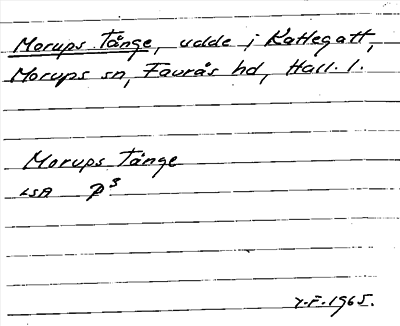 Morups Tånge, udde i Kattegatt,
Morups sn, Faurås hd, Hall. l.
Morups Tånge
LSA P³
Y.F. 1965.